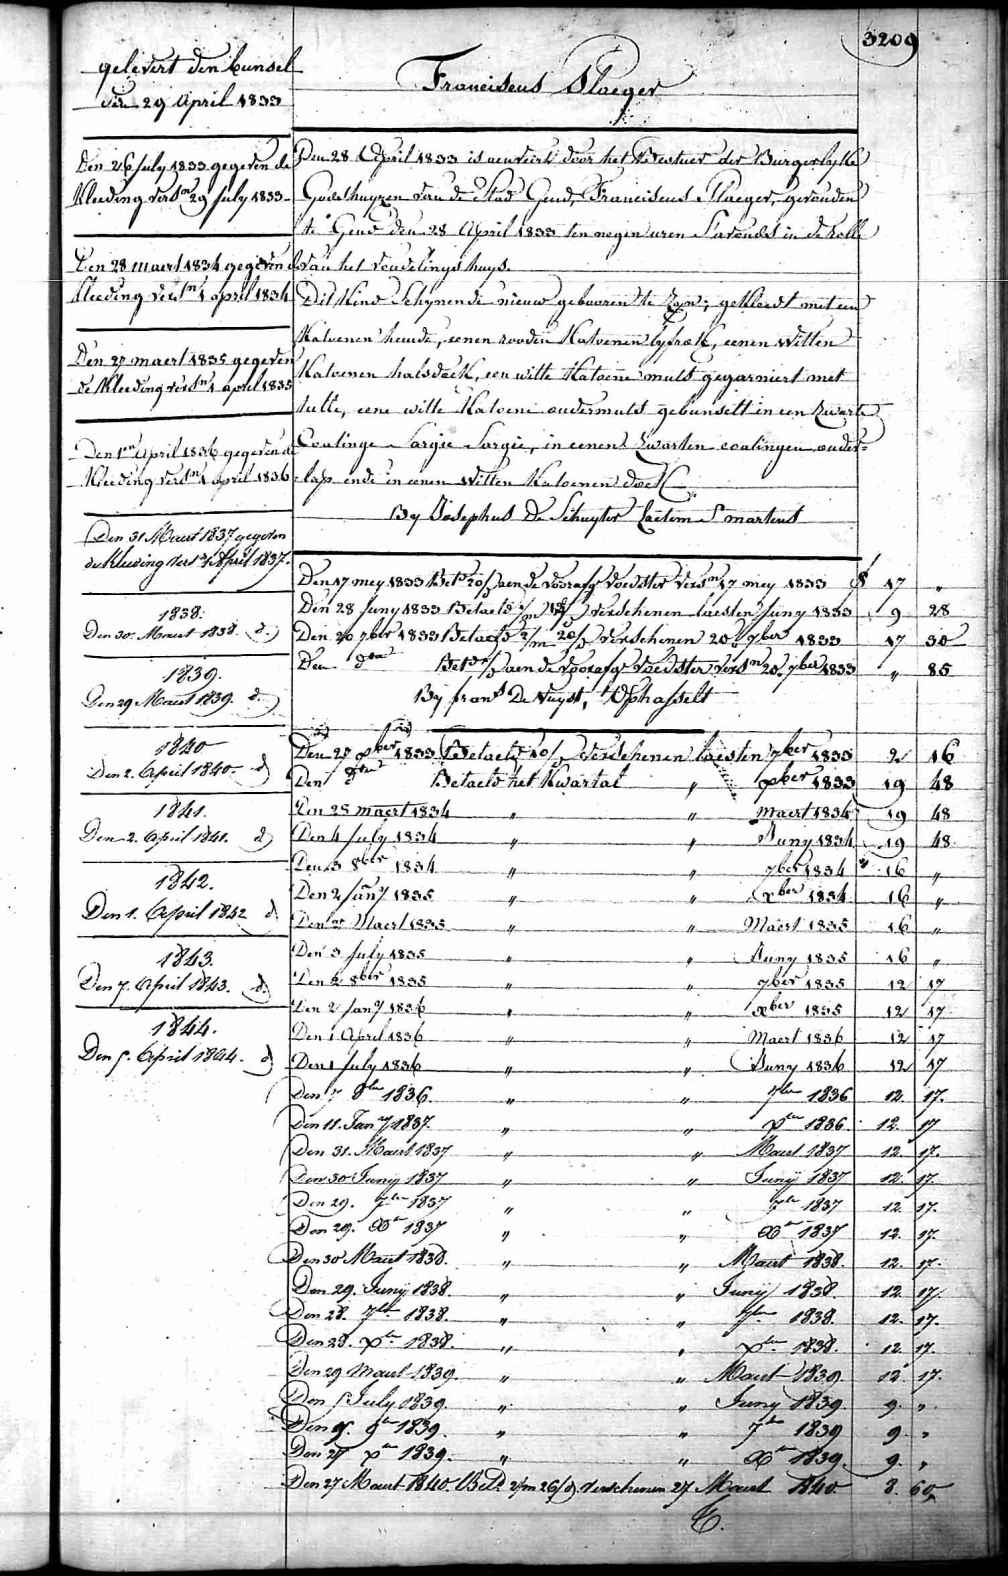 3209
gelevert den bunsel
den 29 April 1833
Den 26 July 1833 gegeven de
Kleeding vers.n 29 July 1833
Den 28 maert 1834 gegeven de
Kleeding vers.n 1 april 1834
Den 27 maert 1835 gegeven
de Kleeding vers.n 1 april 1835
Den 1.en April 1836 gegeven de
Kleeding vers.n 1 april 1836
Den 31 Maert 1837 gegeven
de Kleeding vers.n 1 April 1837.
1838.
Den 30. Maert 1838. d.
1839.
Den 29 Maert 1839. d.
1840
Den 2. April 1840. d
1841.
Den 2. April 1841. d
1842.
Den 1. April 1842 d
1843.
Den 7. April 1843. d.
1844.
Den 5. April 1844. d
Franciscus Plaeger
Den 28 April 1833 is aenveirt door het Bestuer der Burgerlyke
Godshuyzen van de Stad Gend, Franciscus Plaeger, gevonden
te Gend den 28 April 1833 ten negen uren s'avonds in de rolle
van het vondelingshuys.
Dit Kind schynende nieuw gebooren te zyn; gekleedt met een
Katoenen hemde, eenen rooden Katoenen lyfrok, eenen witten
Katoenen halsdoek, een witte Katoene muts gegarniert met
tulle, eene witte Katoene ondermuts gebunselt in een zwarte
Coatinge Sargie Sargie, in eenen zwarten coatingen onder=
lap ende in eenen witten Katoenen doek
By Josephus De Schuyter Laetem S.t martens
Den 17 mey 1833 Bet.d 20/d aen de voorafg.e voedster vers.n 17 mey 1833 f 17 "
Den 28 Juny 1833 Betaeld 1/m 13/d verschenen laesten Juny 1833 9 28
Den 20 7ber 1833 Betaeld 2/m 20/d verschenen 20 7ber 1833 17 30
Den d.to Bet.d 1/d aen de voorafg.e voedster vers.n 20 7ber 1833 " 85
By fran.s De Nuyst, Ophasselt
Den 27 xber 1833 Betaeld 10/d verschenen laesten 7ber 1833 2 16
Den d.to Betaeld het Kwartal " xber 1833 19 48
Den 28 maert 1834 " " maert 1834 19 48
Den 4 July 1834 " " Juny 1834 19 48
Den 3 8ber 1834 " " 7ber 1834 16 "
Den 2 Jan.y 1835 " " xber 1834 16 "
Den 27 Maert 1835 " " Maert 1835 16 "
Den 3 July 1835 " " Juny 1835 16 "
Den 2 8ber 1835 " " 7ber 1835 12 17
Den 2 Jan.y 1836 " " xber 1835 12 17
Den 1 April 1836 " " Maert 1836 12 17
Den 1 July 1836 " " Juny 1836 12 17
Den 7 8ber 1836. " " 7ber 1836 12. 17.
Den 11. Jan.y 1837. " " xber 1836 12. 17
Den 31. Maert 1837 " " Maert 1837 12. 17.
Den 30 Juny 1837 " " Juny 1837 12. 17.
Den 29. 7ber 1837 " " 7ber 1837 12. 17.
Den 29. Xber 1837 " " Xber 1837 12. 17.
Den 30 Maert 1838. " " Maert 1838. 12. 17.
Den 29. Juny 1838. " " Juny 1838. 12. 17.
Den 28. 7ber 1838. " " 7ber 1838. 12. 17.
Den 28. xber 1838. " " xber 1838. 12. 17.
Den 29 Maert 1839. " " Maert 1839. 12 17.
Den 5 July 1839. " " Juny 1839. 9. "
Den 9. 8ber 1839. " " 7ber 1839 9. "
Den 27 xber 1839. " " Xber 1839. 9. "
Den 27 Maert 1840. Bet.d 2/m 26/d. verschenen 27 Maert 1840 8. 60